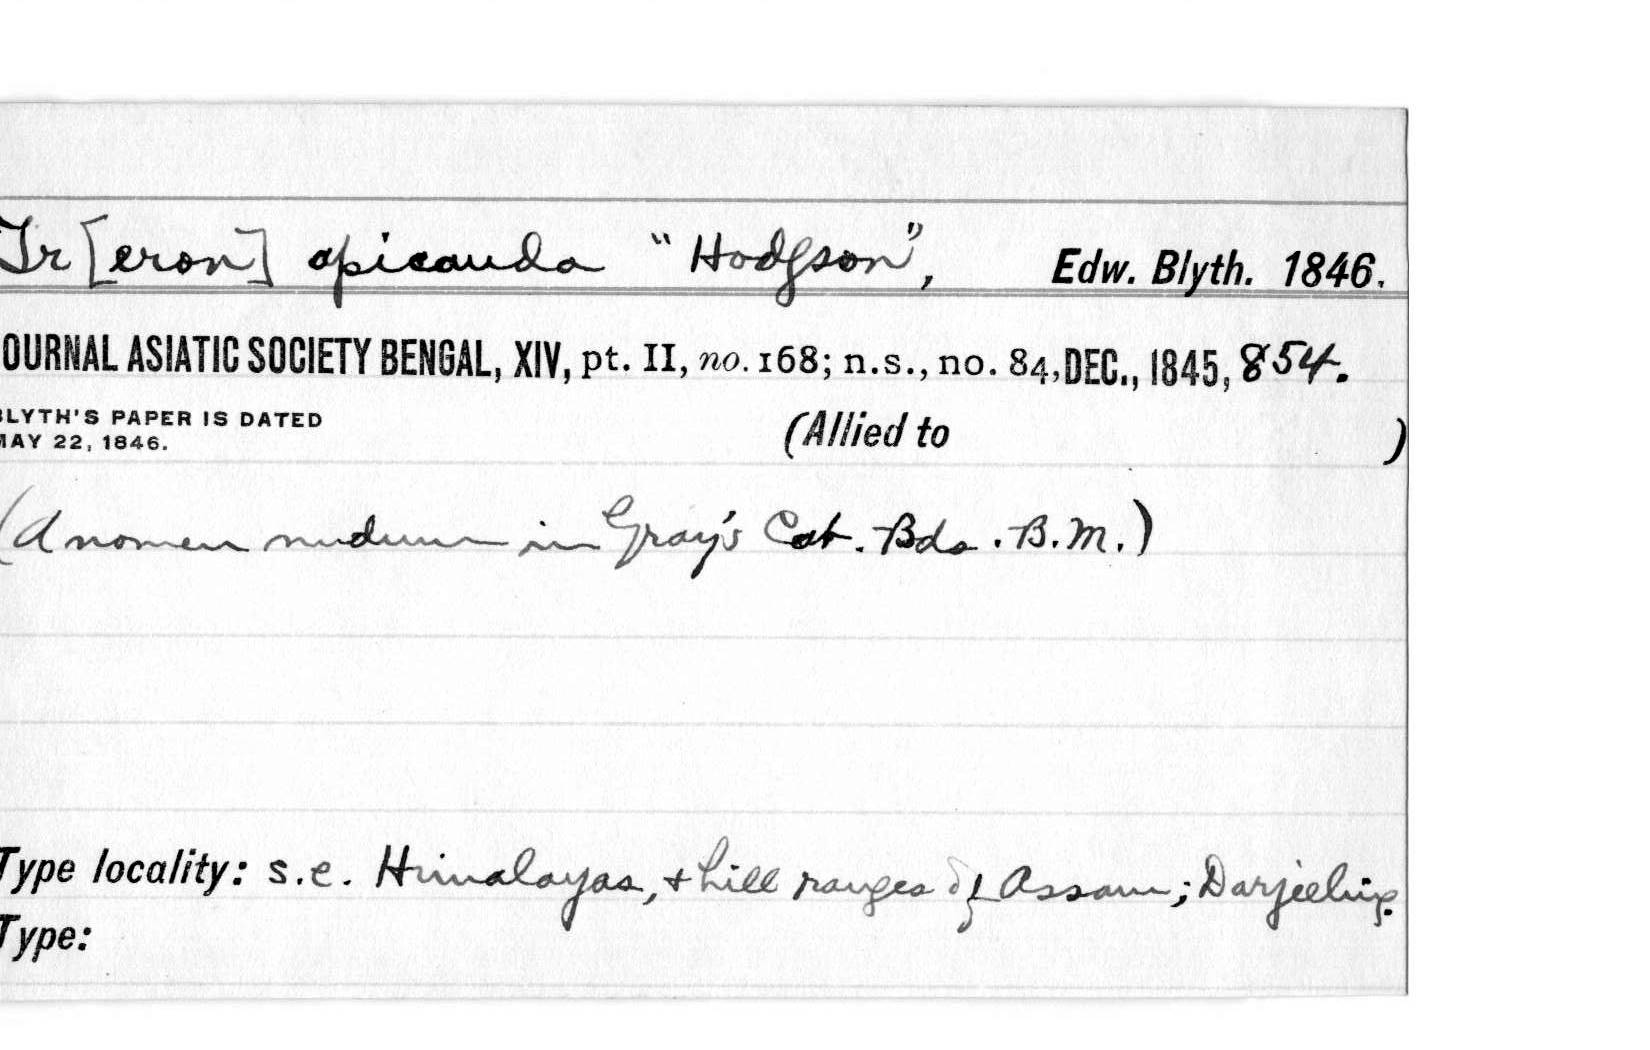 Tr[eron] apicauda "Hodgson", Edw. Blyth. 1846.
OURNAL ASIATIC SOCIETY BENGAL, XIV, pt. II, no. 168; n.s., no. 84, DEC., 1845, 854.
BLYTH'S PAPER IS DATED
MAY 22, 1846.
(Allied to )
(A nomen nudum in Gray's Cat. Bds. B.M.)
Type locality: s.e. Himalayas, & hill ranges of Assam; Darjeeling.
Type: